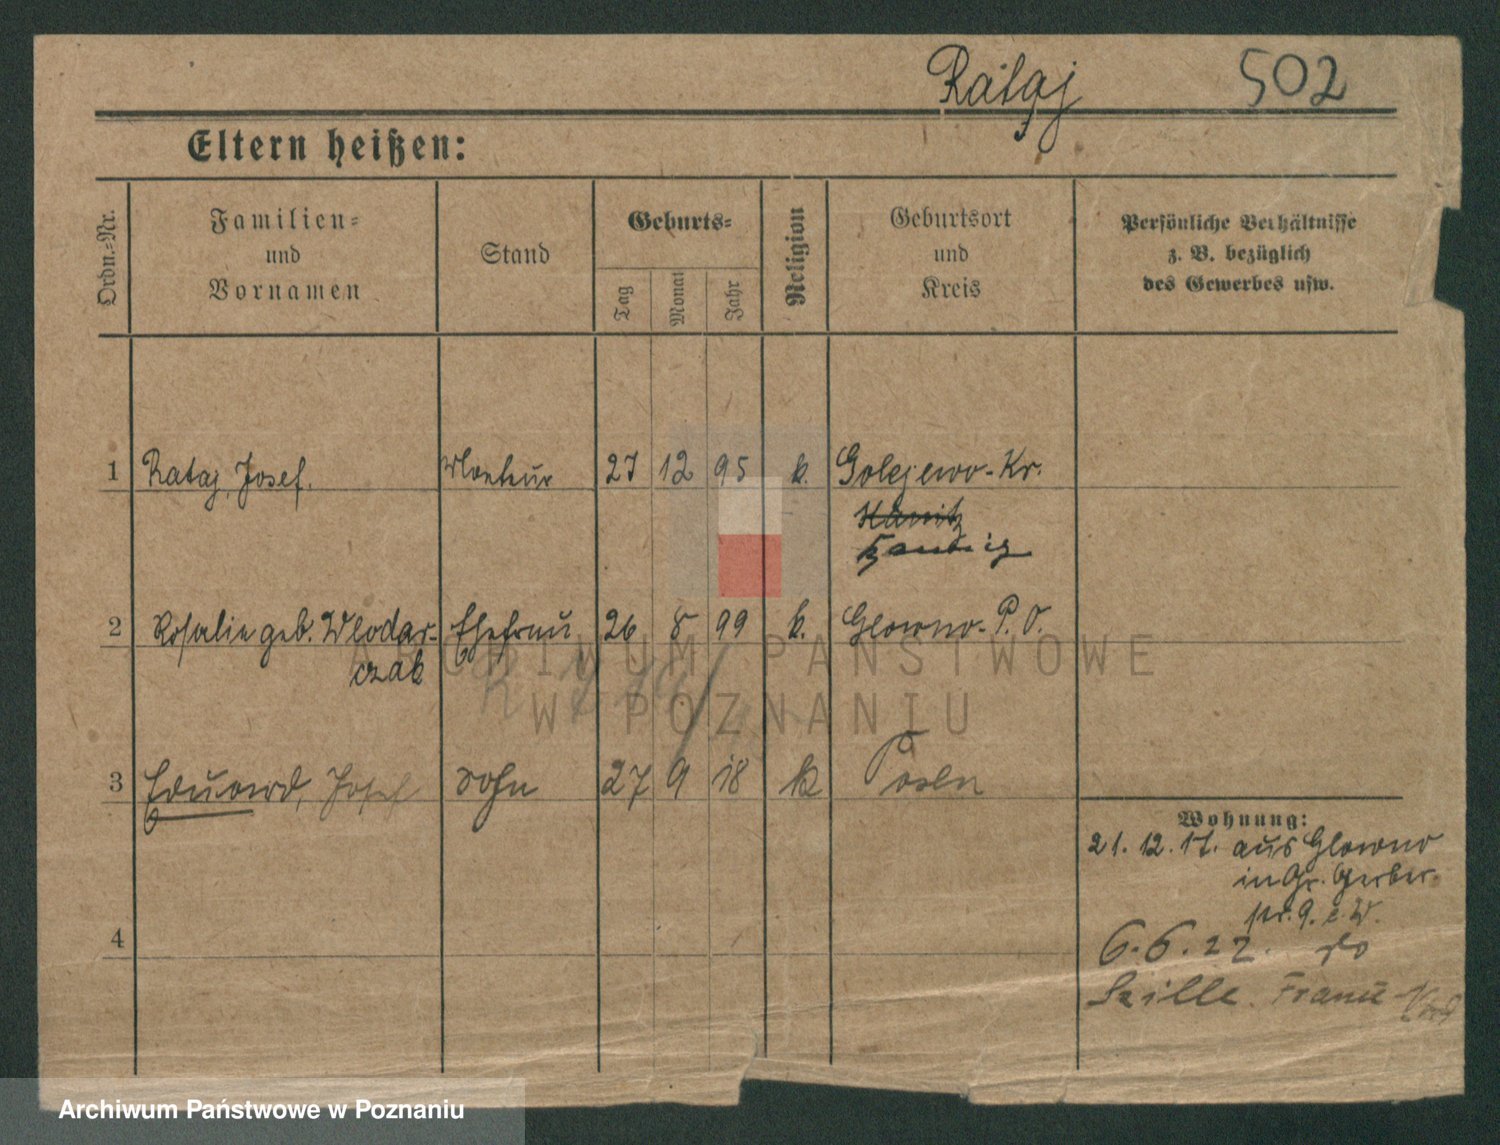 Rataj 502
Eltern heißen:
Ordn.-Nr.
Familien-
und
Vornamen
Stand
Geburts-
Tag
Monat
Jahr
Religion
Geburtsort
und
Kreis
Persönliche Verhältnisse
z. B. bezüglich
des Gewerbes usw.
1 Rataj, Josef. Monteur 27 12 95 k. Golejewo-Kr.
2 Rosalie geb. Wlodar- Ehefrau 26 8 99 k. Glowno-P.O.
czak
3 Eduard, Josef Sohn 27 9 18 k Posen
4
Wohnung:
21.12.17. aus Glowno
in Gr. Gerber-
str. 9. b. W.
6.6.22.
Szille
ARCHIWUM PAŃSTWOWE
W POZNANIU
Archiwum Państwowe w Poznaniu